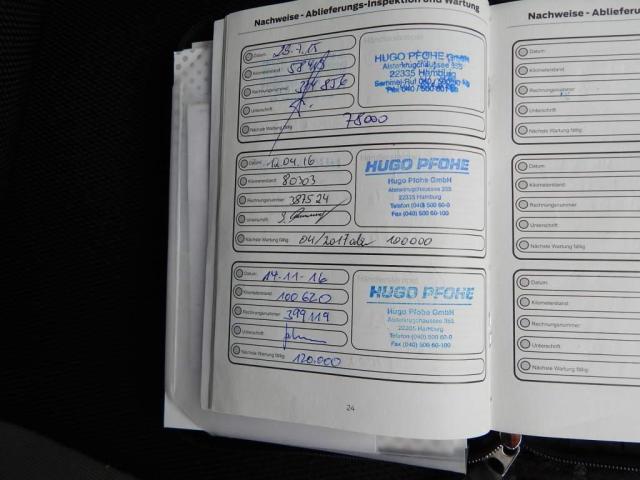 Nachweise - Ablieferungs-Inspektion und Wartung
Datum: 29.7.15
Kilometerstand:
Rechnungsnummer:
Unterschrift:
Nächste Wartung fällig: 78000
HUGO PFOHE GmbH
Alsterkrugchaussee 355
22335 Hamburg
Datum: 12.04.16
Kilometerstand: 80303
Rechnungsnummer: 387524
Unterschrift:
Nächste Wartung fällig: 04/2017 oder 100000
HUGO PFOHE
Hugo Pfohe GmbH
Alsterkrugchaussee 355
22335 Hamburg
Telefon (040) 500 60-0
Fax (040) 500 60-100
Datum: 14-11-16
Kilometerstand: 100620
Rechnungsnummer: 399119
Unterschrift:
Nächste Wartung fällig: 120.000
HUGO PFOHE
Hugo Pfohe GmbH
Alsterkrugchaussee 355
22335 Hamburg
Telefon (040) 500 60-0
Fax (040) 500 60-100
24
Nachweise - Ablieferu
Datum:
Kilometerstand:
Rechnungsnummer:
Unterschrift:
Nächste Wartung fällig:
Datum:
Kilometerstand:
Rechnungsnummer:
Unterschrift:
Nächste Wartung fällig:
Datum:
Kilometerstand:
Rechnungsnummer:
Unterschrift:
Nächste Wartung fällig: